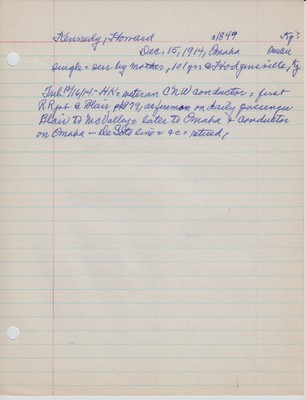 Kennedy, Howard a1849 Ky?
Dec. 15, 1914, Omaha Omaha
single = sur by mother, 101 yrs @ Hodgensville, Ky
Trib 12/16/14 - HK = veteran CNW conductor = first
RR job @ Blair 1874, as fireman on daily passenger
Blair to Mo Valley = later to Omaha & conductor
on Omaha - De Soto line = &c = retired,